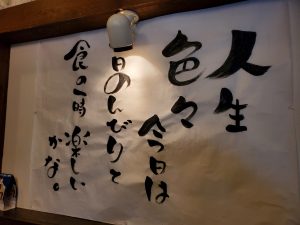 人生
色々
今日は
一日のんびりと
食の一時
楽しい
かな。